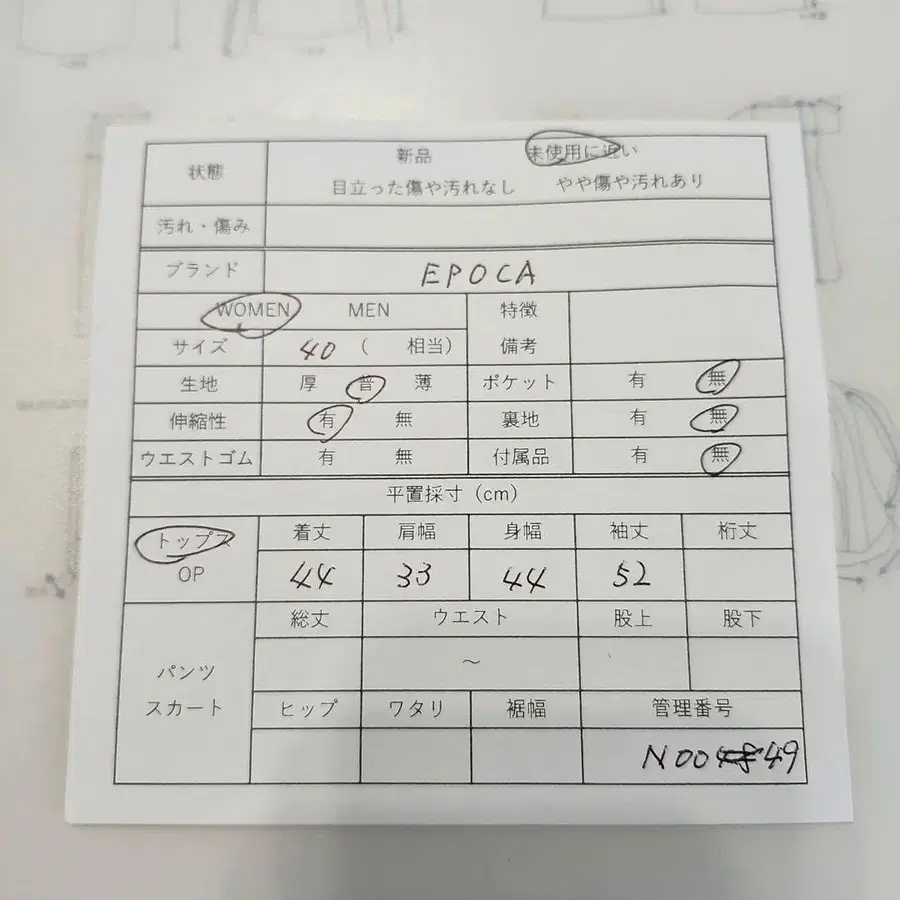 状態 新品 未使用に近い
目立った傷や汚れなし やや傷や汚れあり
汚れ・傷み
ブランド EPOCA
WOMEN MEN 特徴
サイズ 40 ( 相当) 備考
生地 厚 普 薄 ポケット 有 無
伸縮性 有 無 裏地 有 無
ウエストゴム 有 無 付属品 有 無
平置採寸(cm)
トップス 着丈 肩幅 身幅 袖丈 桁丈
OP 44 33 44 52
総丈 ウエスト 股上 股下
パンツ ～
スカート ヒップ ワタリ 裾幅 管理番号
N00 49